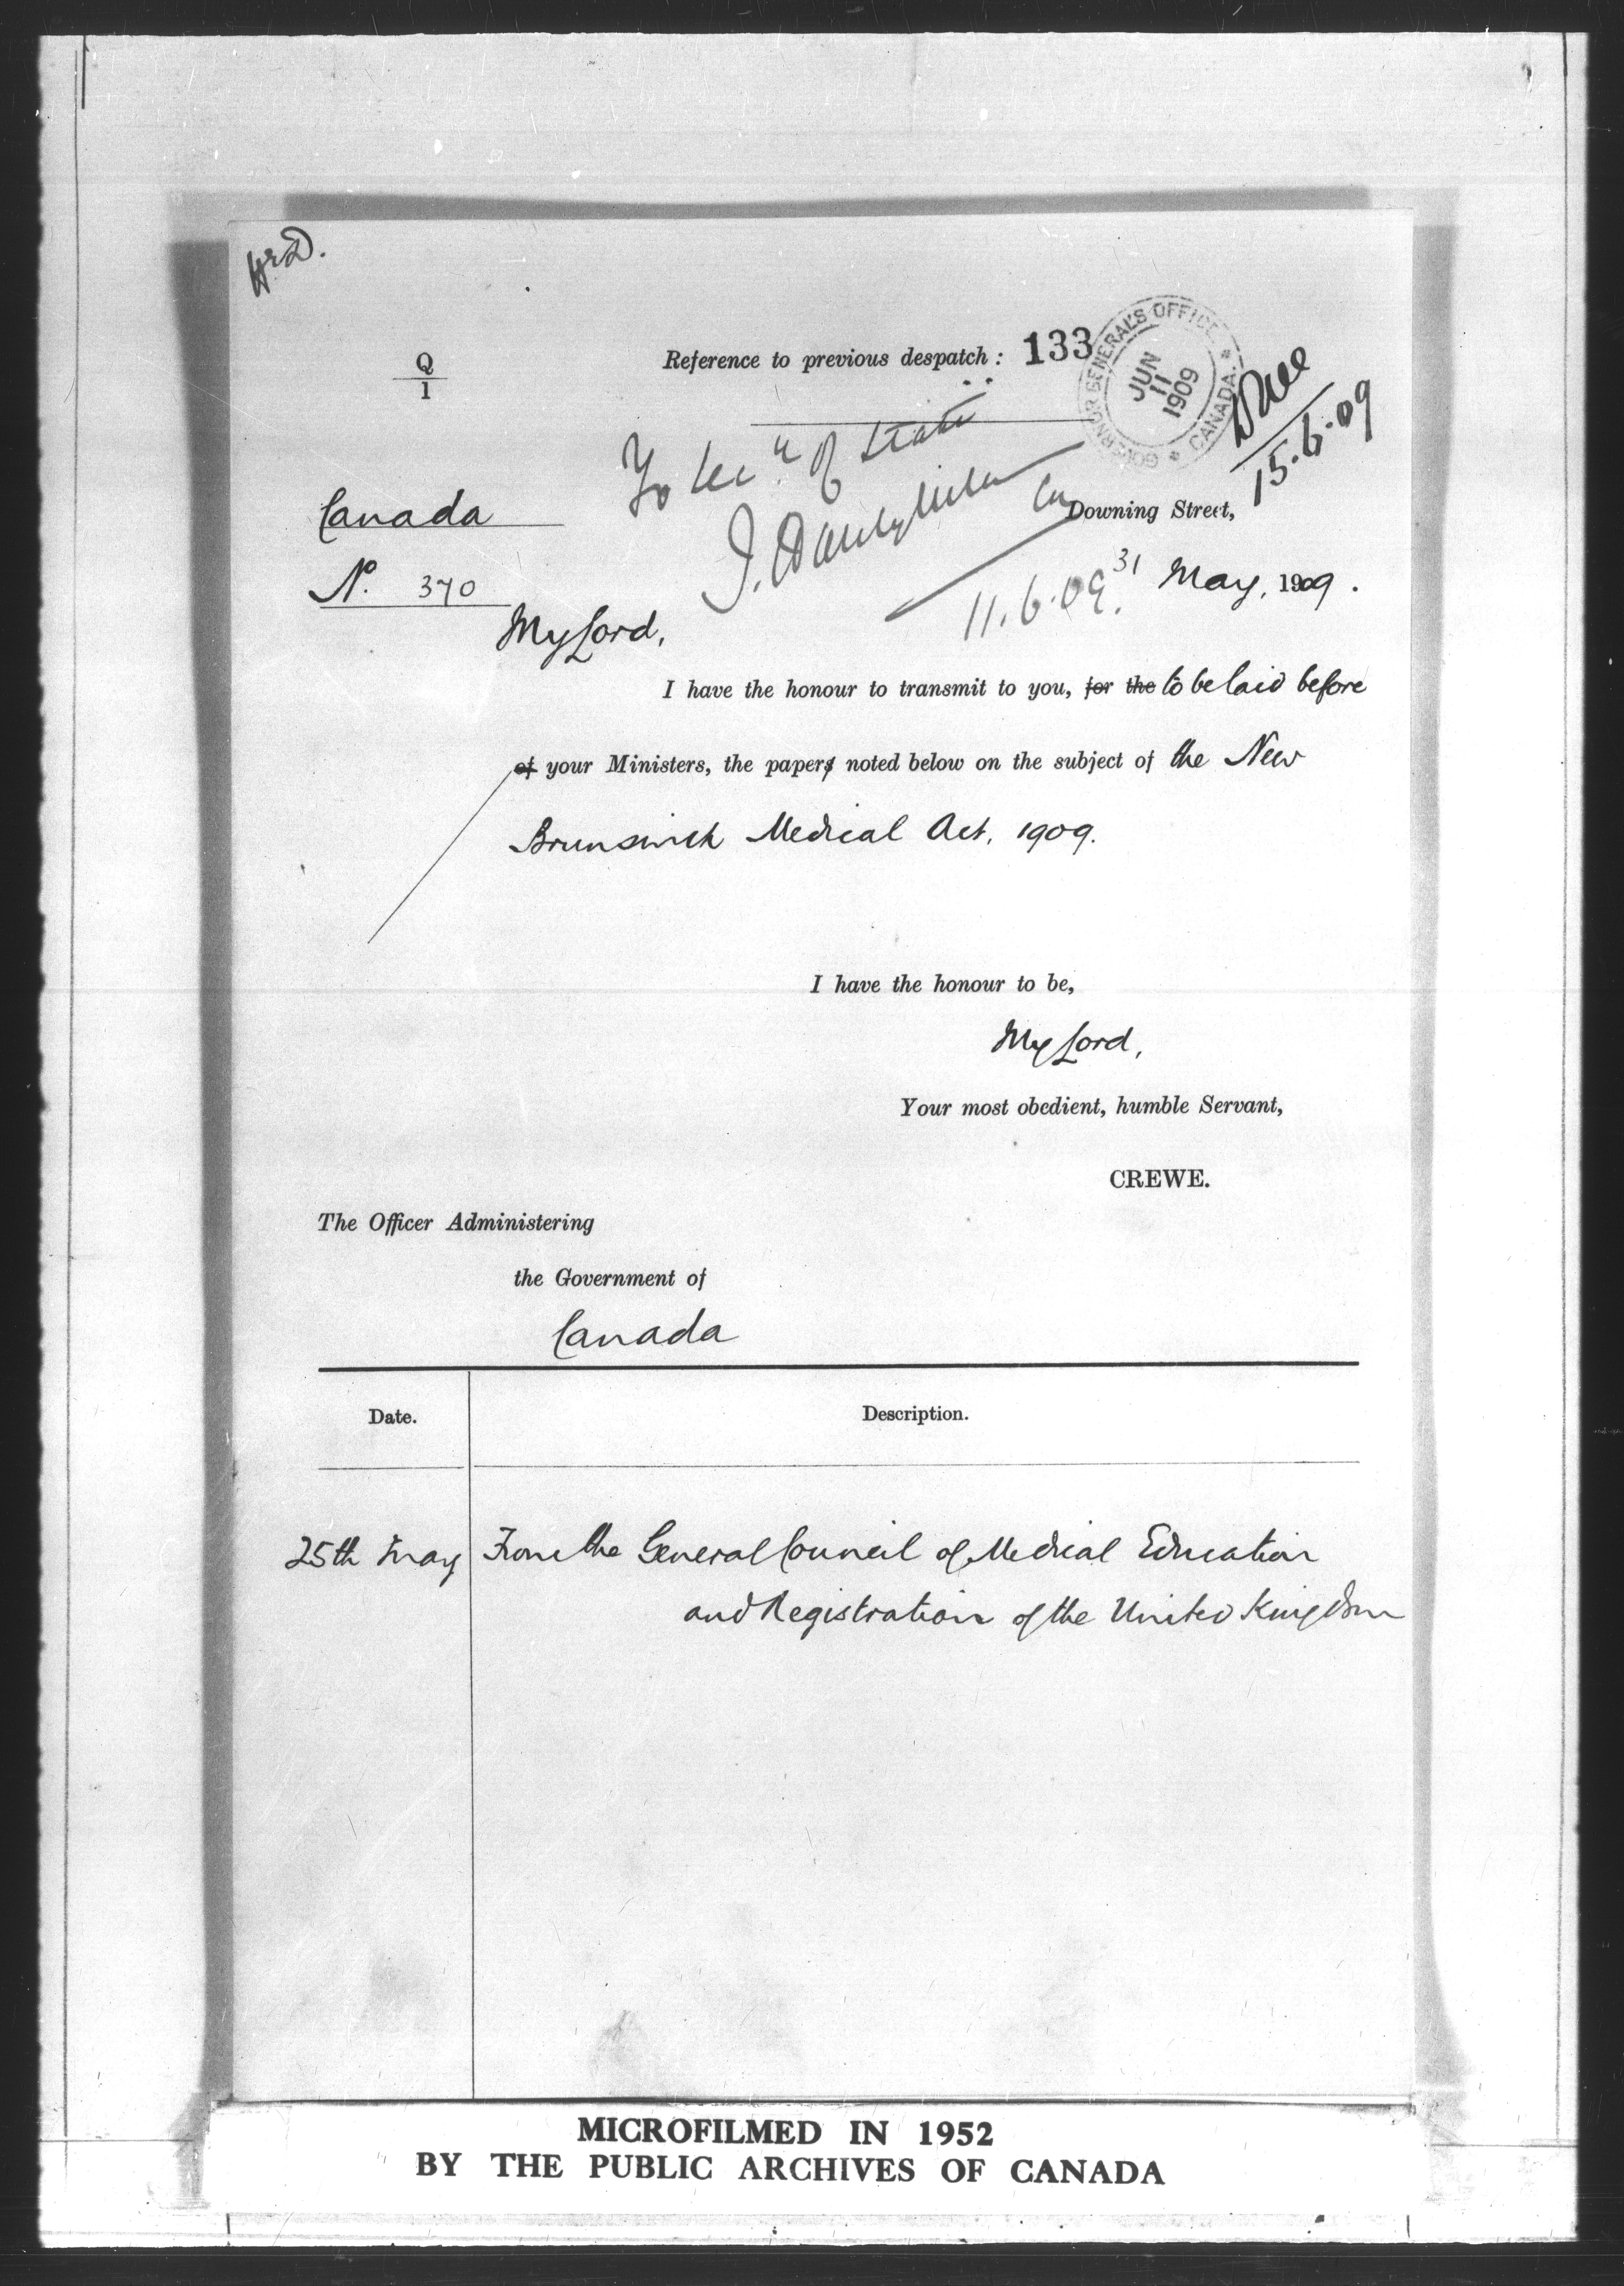 Q
1
Reference to previous despatch : 133
GOVERNOR GENERAL'S OFFICE
* CANADA. *
JUN
11
1909
15.6.09
To Secy of State
Canada
Downing Street,
No. 370
11.6.09.
31 May, 1909.
My Lord,
I have the honour to transmit to you, for the to be laid before
of your Ministers, the paper noted below on the subject of the New
Brunswick Medical Act, 1909.
I have the honour to be,
My Lord,
Your most obedient, humble Servant,
CREWE.
The Officer Administering
the Government of
Canada
Date.
Description.
25th May
From the General Council of Medical Education
and Registration of the United Kingdom
MICROFILMED IN 1952
BY THE PUBLIC ARCHIVES OF CANADA